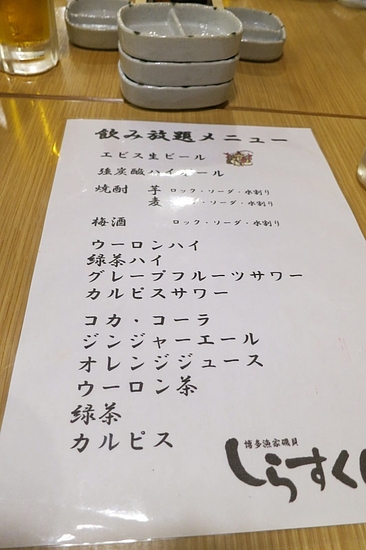 飲み放題メニュー
エビス生ビール
強炭酸ハイボール
焼酎 芋 ロック・ソーダ・水割り
麦 ロック・ソーダ・水割り
梅酒 ロック・ソーダ・水割り
ウーロンハイ
緑茶ハイ
グレープフルーツサワー
カルピスサワー
コカ・コーラ
ジンジャーエール
オレンジジュース
ウーロン茶
緑茶
カルピス
博多漁家磯貝
しらすく